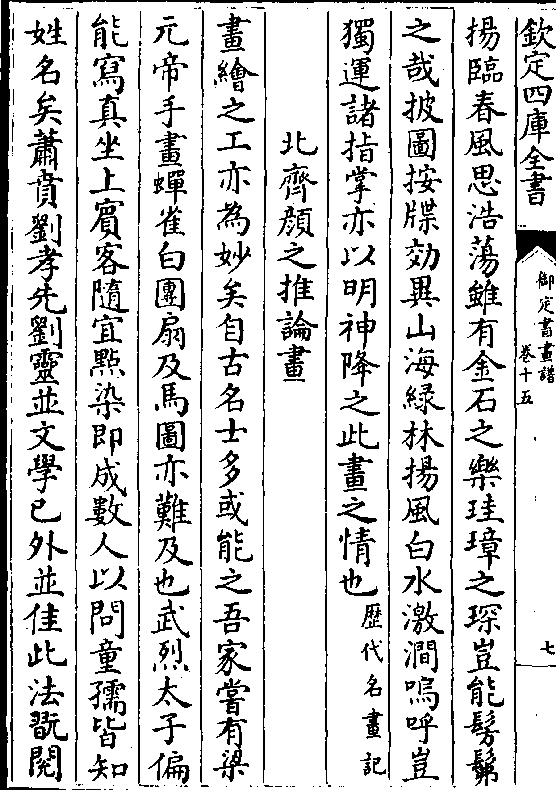 欽定四庫全書
御定書畫譜
卷十五
七
揚臨春風思浩蕩雖有金石之樂珪璋之琛豈能髣髴
之哉披圖按牒効異山海緑林揚風白水激澗嗚呼豈
獨運諸指掌亦以明神降之此畫之情也歴代名畫記
北齊顔之推論畫
畫繪之工亦為妙矣自古名士多或能之吾家嘗有梁
元帝手畫蟬雀白團扇及馬圖亦難及也武烈太子偏
能寫真坐上賓客隨宜㸃染即成數人以問童孺皆知
姓名矣蕭賁劉孝先劉靈並文學已外並佳此法翫閱